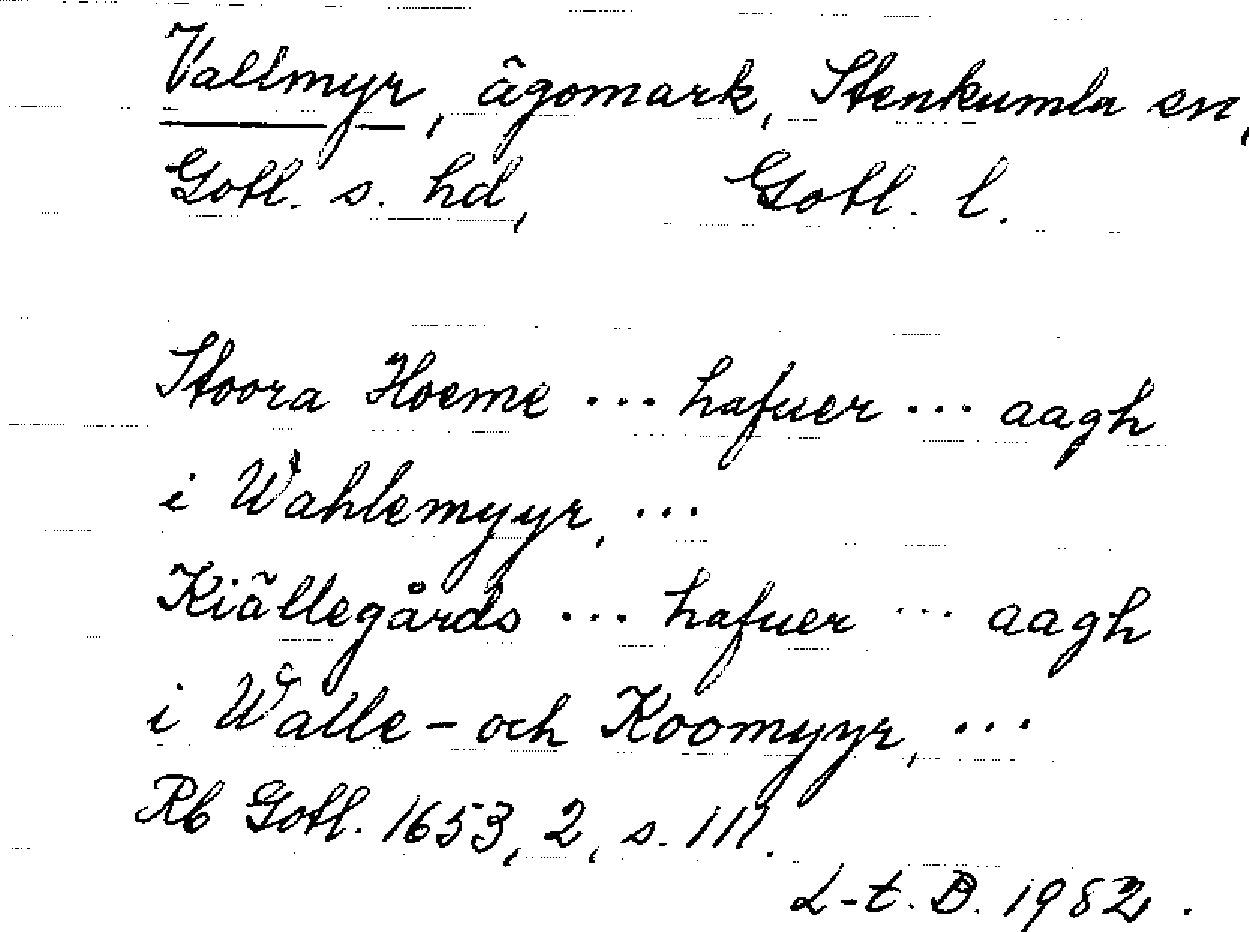 Vallmyr, ägomark, Stenkumla sn,
Gotl. s. hd, Gotl. l.
Stoora Hoeme ... hafuer ... aagh
i Wahlemyyr, ...
Kiällegårds ... hafuer ... aagh
i Walle- och Koomyyr, ...
Rb Gotl. 1653, 2, s. 111.
L-t. B. 1982.